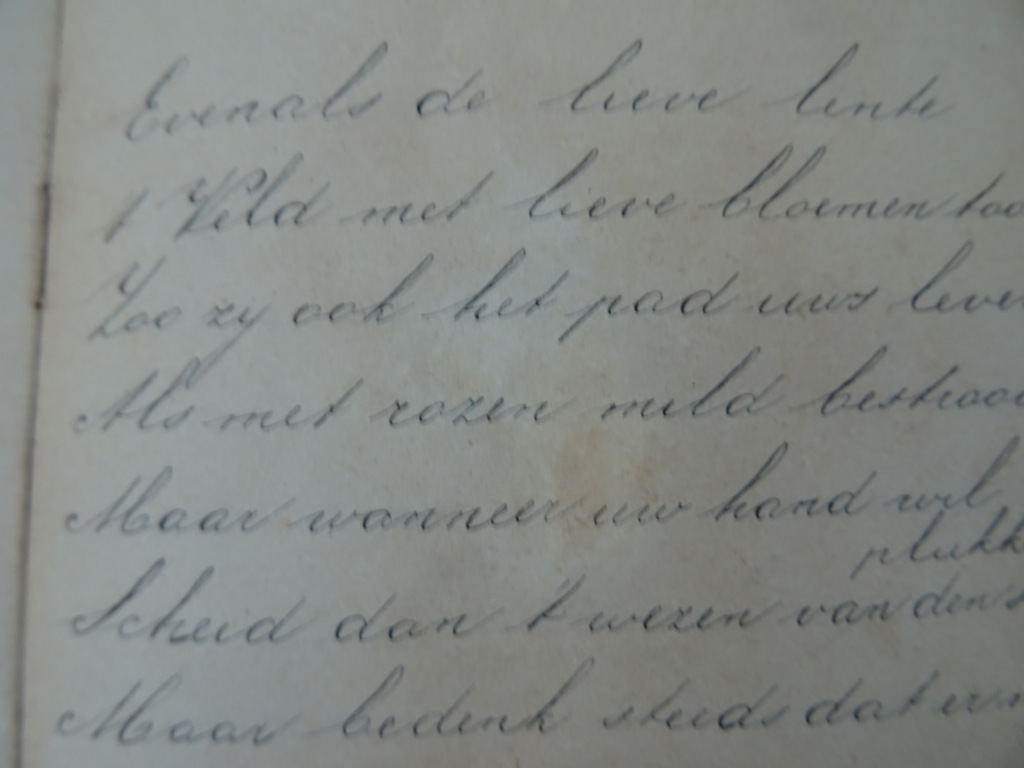 Evenals de lieve lente
't Veld met lieve bloemen too
Zoo zy ook het pad uws leve
Als met rozen mild bestrooi
Maar wanneer uw hand wil
plukk
Scheid dan 't wezen van den s
Maar bedenk steeds dat er